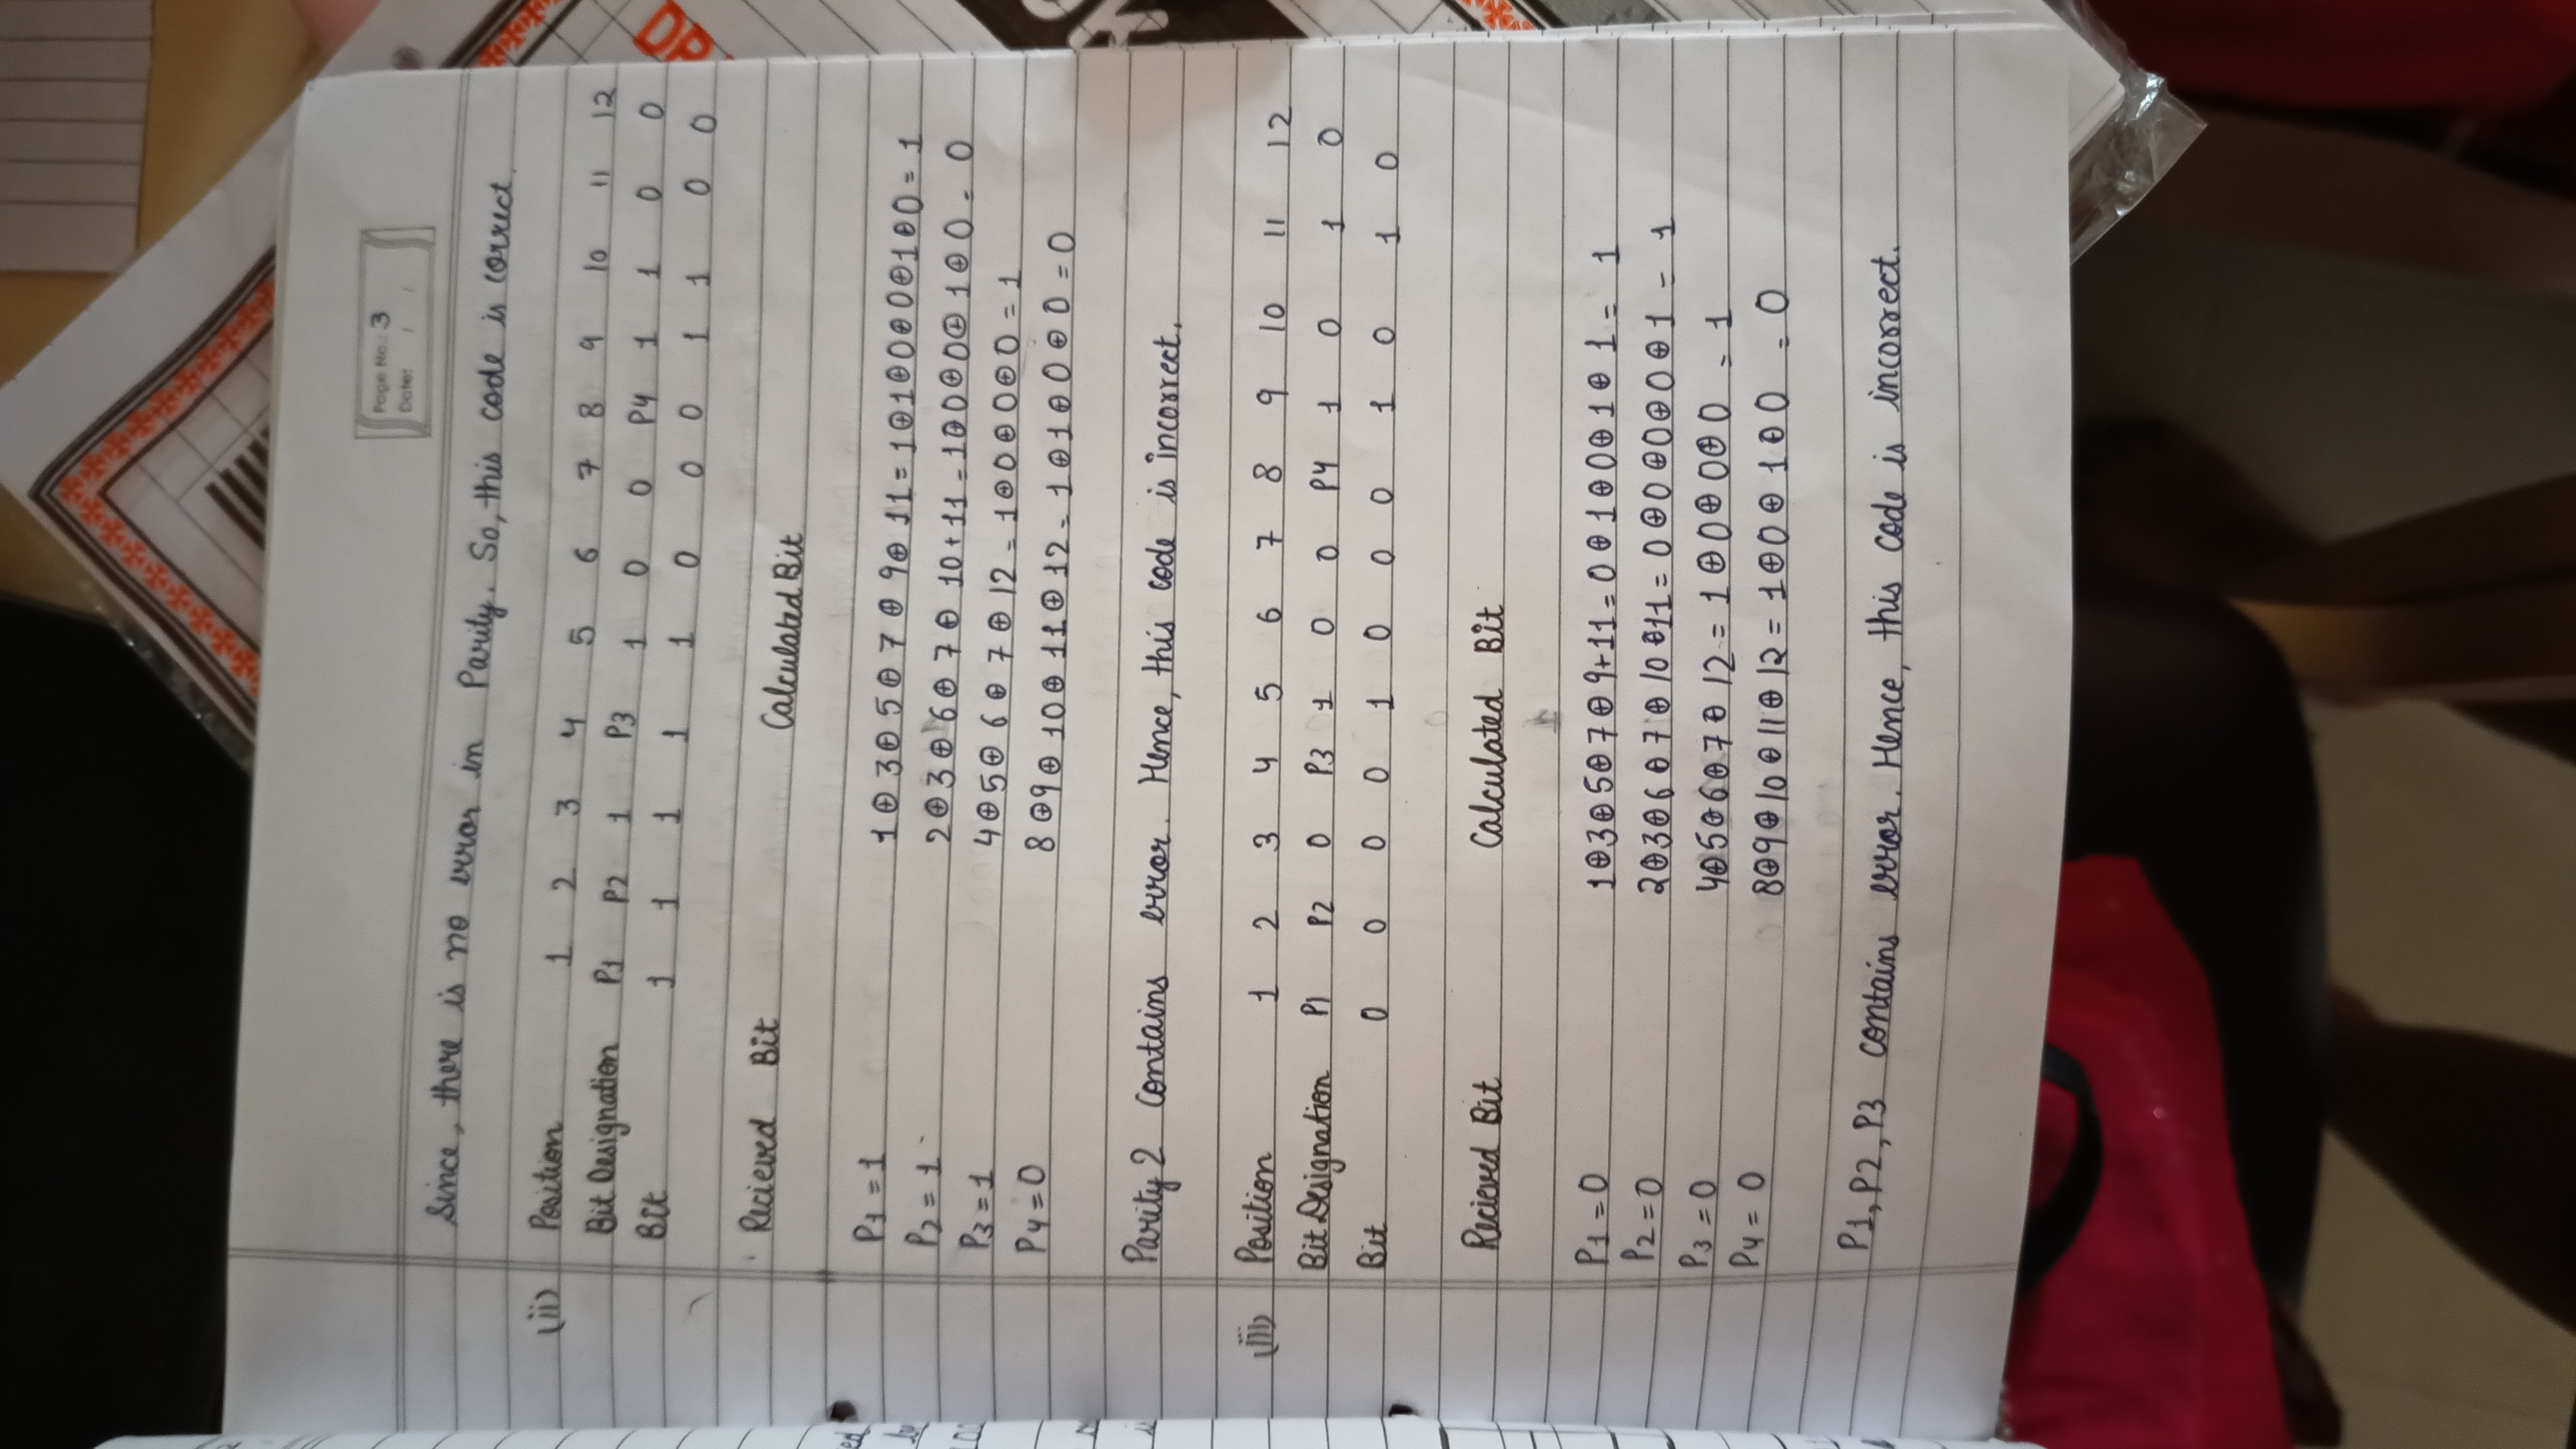 Page No.: 3
Date: / /
Since, there is no error in Parity. So, this code is correct.
(ii) Position 1 2 3 4 5 6 7 8 9 10 11 12
Bit Designation P1 P2 1 P3 1 0 0 P4 1 1 0 0
Bit 1 1 1 1 1 0 0 0 1 1 0 0
Recieved Bit Calculated Bit
P1 = 1 1⊕3⊕5⊕7⊕9⊕11 = 1⊕1⊕0⊕0⊕1⊕0 = 1
P2 = 1 2⊕3⊕6⊕7⊕10+11 = 1⊕0⊕0⊕1⊕0 = 0
P3 = 1 4⊕5⊕6⊕7⊕12 = 1⊕0⊕0⊕0 = 1
P4 = 0 8⊕9⊕10⊕11⊕12 = 1⊕1⊕0⊕0 = 0
Parity 2 contains error. Hence, this code is incorrect.
(iii) Position 1 2 3 4 5 6 7 8 9 10 11 12
Bit Designation P1 P2 0 P3 1 0 0 P4 1 0 1 0
Bit 0 0 0 0 1 0 0 0 1 0 1 0
Recieved Bit Calculated Bit
P1 = 0 1⊕3⊕5⊕7⊕9+11 = 0⊕1⊕0⊕1⊕1 = 1
P2 = 0 2⊕3⊕6⊕7⊕10⊕11 = 0⊕0⊕0⊕0⊕1 = 1
P3 = 0 4⊕5⊕6⊕7⊕12 = 1⊕0⊕0⊕0 = 1
P4 = 0 8⊕9⊕10⊕11⊕12 = 1⊕0⊕1⊕0 = 0
P1, P2, P3 contains error. Hence, this code is incorrect.